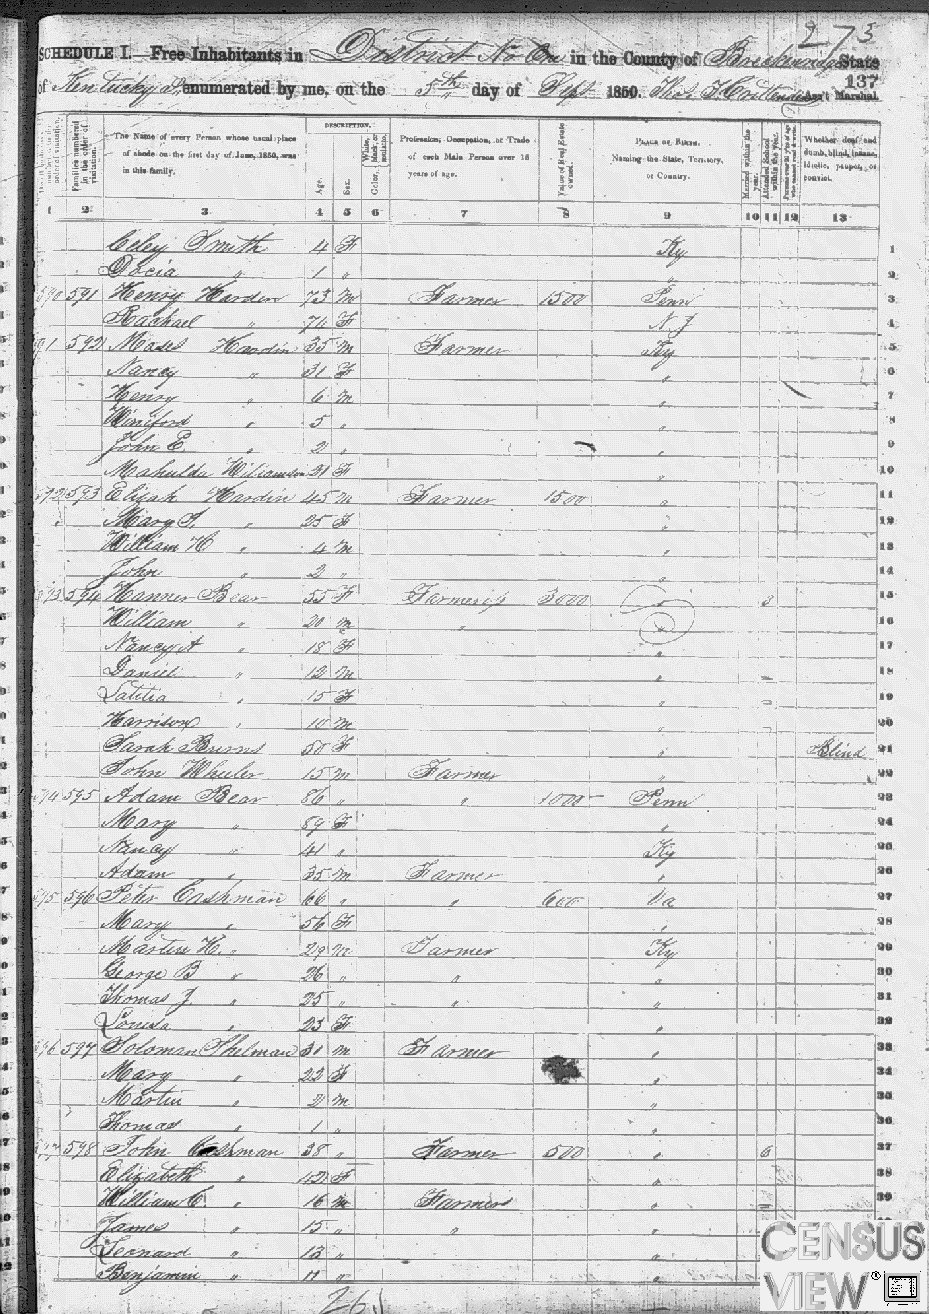 273
SCHEDULE I.—Free Inhabitants in District No One in the County of Breckenridge State
of Kentucky enumerated by me, on the 5th day of Sept 1850. Ass't Marshal
137
Families numbered in the order of visitation.
The Name of every Person whose usual place of abode on the first day of June, 1850, was in this family.
DESCRIPTION.
Age.
Sex.
Color, White, black, or mulatto.
Profession, Occupation, or Trade of each Male Person over 15 years of age.
Value of Real Estate owned.
PLACE OF BIRTH.
Naming the State, Territory, or Country.
Married within the year.
Attended School within the Year.
Whether deaf and dumb, blind, insane, idiotic, pauper, or convict.
1 2 3 4 5 6 7 8 9 10 11 12 13
Celey Smith 4 F Ky 1
Docia " 1 " " 2
591 Henry Hardin 73 M Farmer 1500 Penn 3
Rachael " 71 F N J 4
592 Moses Hardin 35 M Farmer Ky 5
Nancy " 31 F " 6
Henry " 6 M " 7
Winiford " 5 " " 8
John E. " 2 " " 9
Mahulda Williamson 21 F " 10
592 593 Elijah Hardin 45 M Farmer 1500 " 11
Mary " 25 F " 12
William H " 4 M " 13
John " 2 " " 14
593 594 Hanner Bear 55 F 3000 " 3 15
William " 20 M " " 16
Nancy A " 18 F " 17
Daniel " 12 M " 18
Latitia " 15 F " 19
Harrison " 10 M " 20
Sarah Burns 50 F " Blind 21
John Wheeler 15 M Farmer " 22
594 595 Adam Bear 86 " " 1000 Penn 23
Mary " 89 F " 24
Nancy " 41 " Ky 25
Adam " 35 M Farmer " 26
595 596 Peter Cashman 66 " " 600 Va 27
Mary " 56 F " 28
Martin H. " 29 M Farmer Ky 29
George B " 26 " " " 30
Thomas J " 25 " " " 31
Louisa " 23 F " 32
596 597 Soloman Shelman 31 M Farmer " 33
Mary " 22 F " 34
Martin " 2 M " 35
Thomas " 1 " " 36
598 John Cashman 38 " Farmer 500 " 6 37
Elizabeth " 42 F " 38
William C. " 16 M Farmers " 39
James " 15 " " "
Leonard " 13 " "
Benjamin " 11 " "
CENSUS
VIEW®